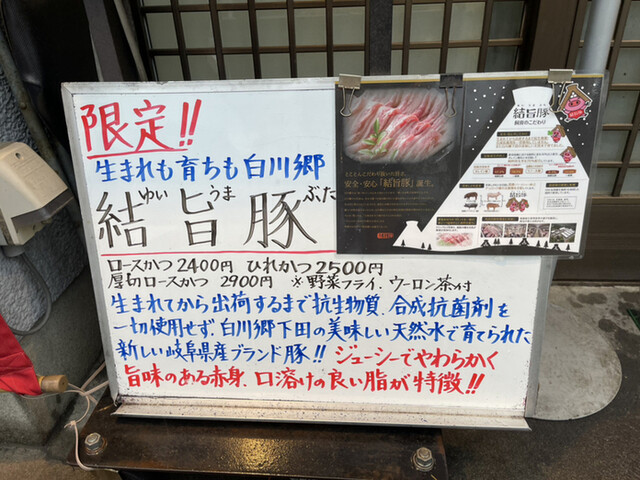 限定!!
生まれも育ちも白川郷
ゆい うま ぶた
結旨豚
ロースかつ 2400円 ひれかつ 2500円
厚切ロースかつ 2900円 ※野菜フライ、ウーロン茶付
生まれてから出荷するまで抗生物質、合成抗菌剤を
一切使用せず 白川郷下田の美味しい天然水で育てられた
新しい岐阜県産ブランド豚!! ジューシーでやわらかく
旨味のある赤身、口溶けの良い脂が特徴!!
安全・安心「結旨豚」誕生。
結旨豚